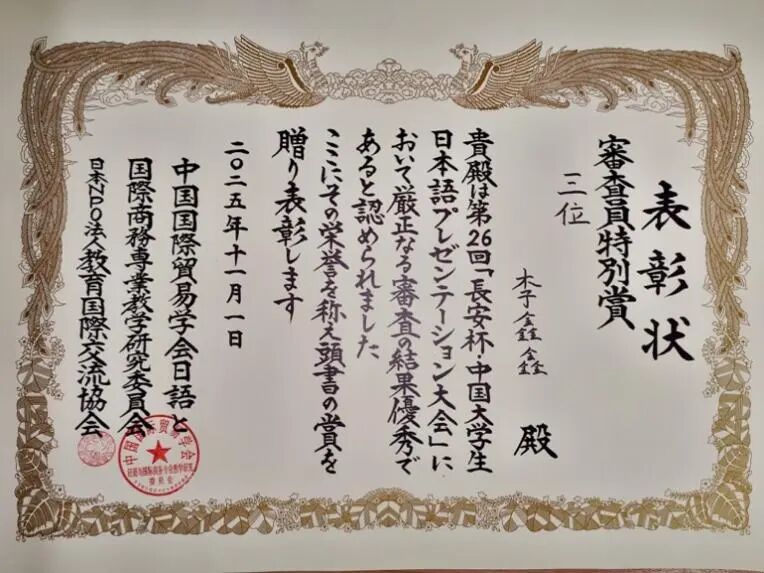 表彰状
審査員特別賞
三位
木子鑫鑫 殿
貴殿は第26回「長安杯・中国大学生
日本語プレゼンテーション大会」に
おいて厳正なる審査の結果優秀で
あると認められました
ここにその栄誉を称え頭書の賞を
贈り表彰します
二〇二五年十一月一日
中国国際貿易学会日語と
国際商務専業教学研究委員会
日本NPO法人教育国際交流協会
中国国际贸易学会